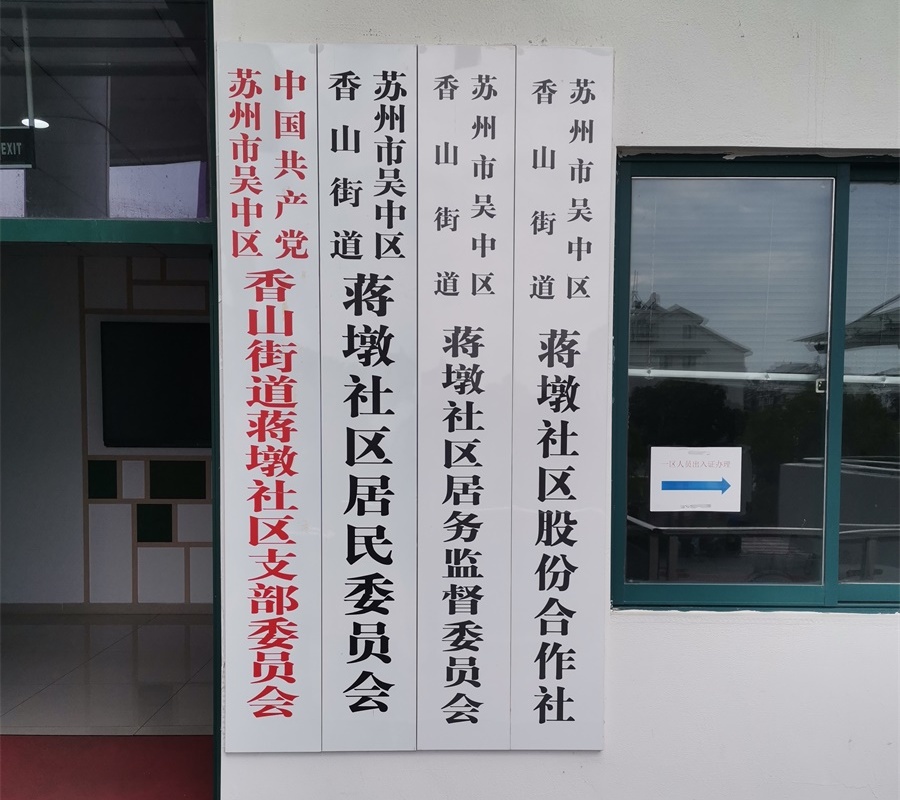 中国共产党
苏州市吴中区
香山街道蒋墩社区支部委员会
苏州市吴中区
香山街道
蒋墩社区居民委员会
苏州市吴中区
香山街道
蒋墩社区居务监督委员会
苏州市吴中区
香山街道
蒋墩社区股份合作社
EXIT
一区人员出入证办理